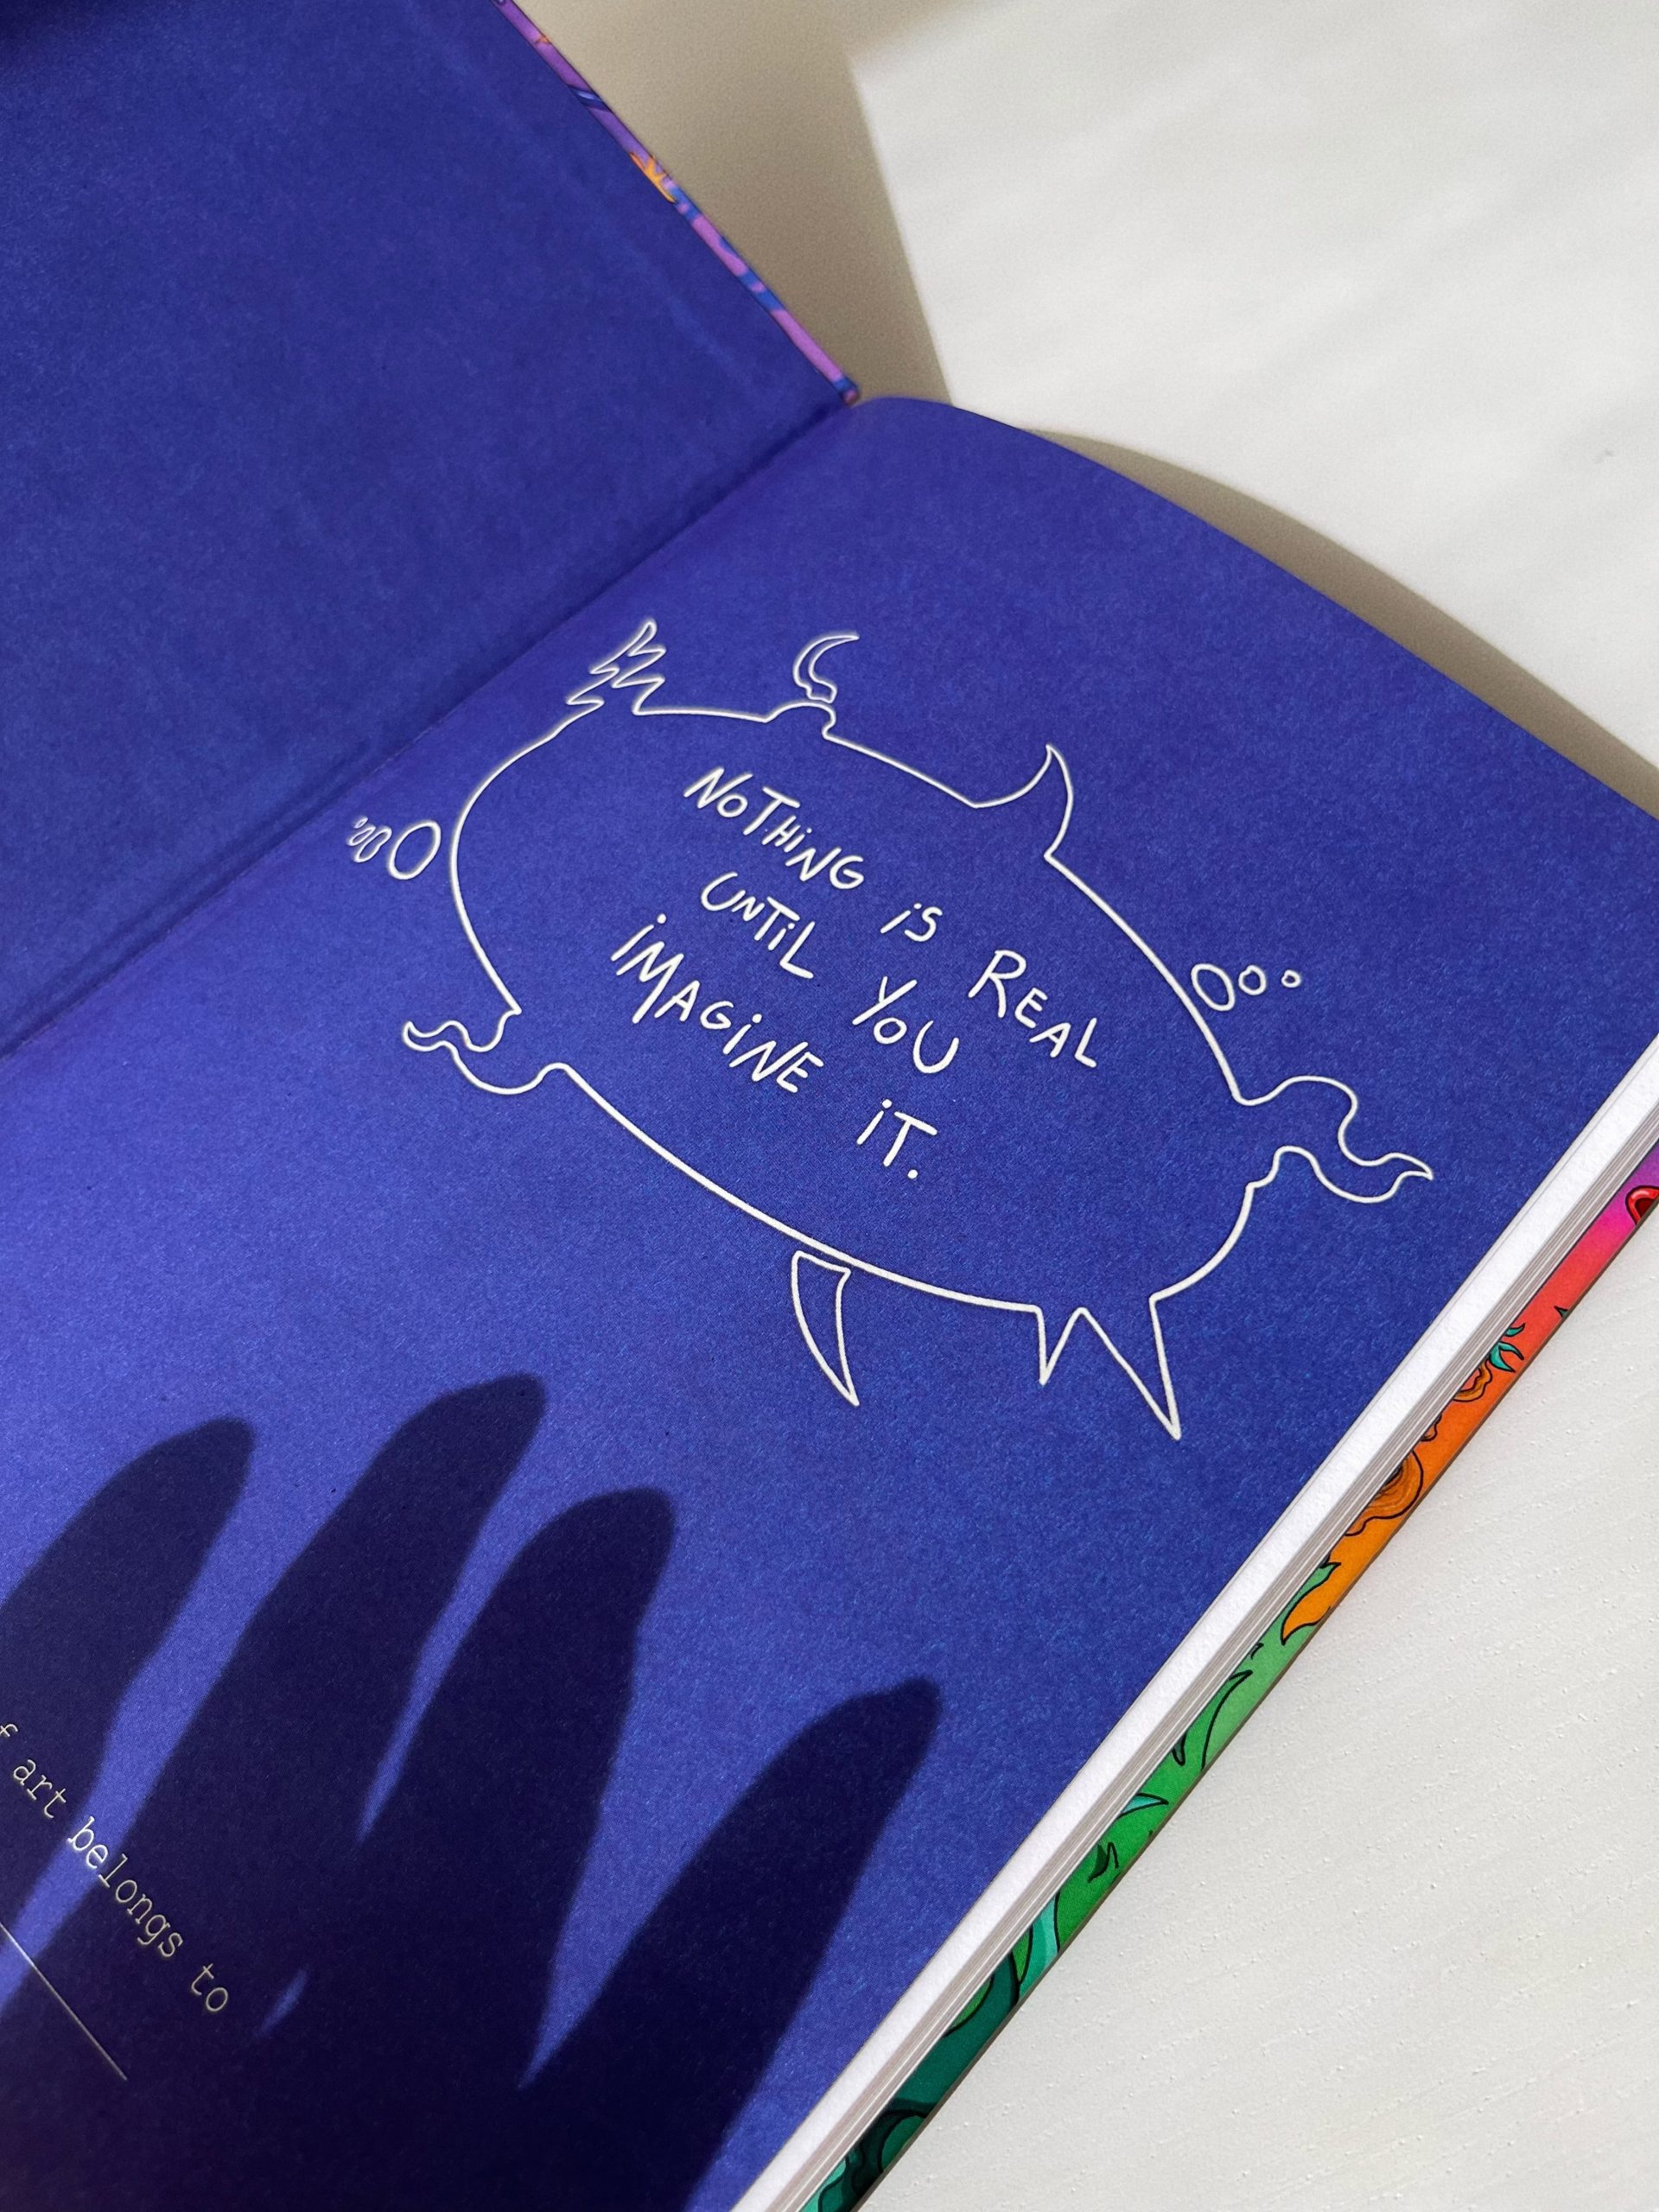 NOTHiNG iS REAL
UNTiL YOU
iMAGiNE iT.
art belongs to